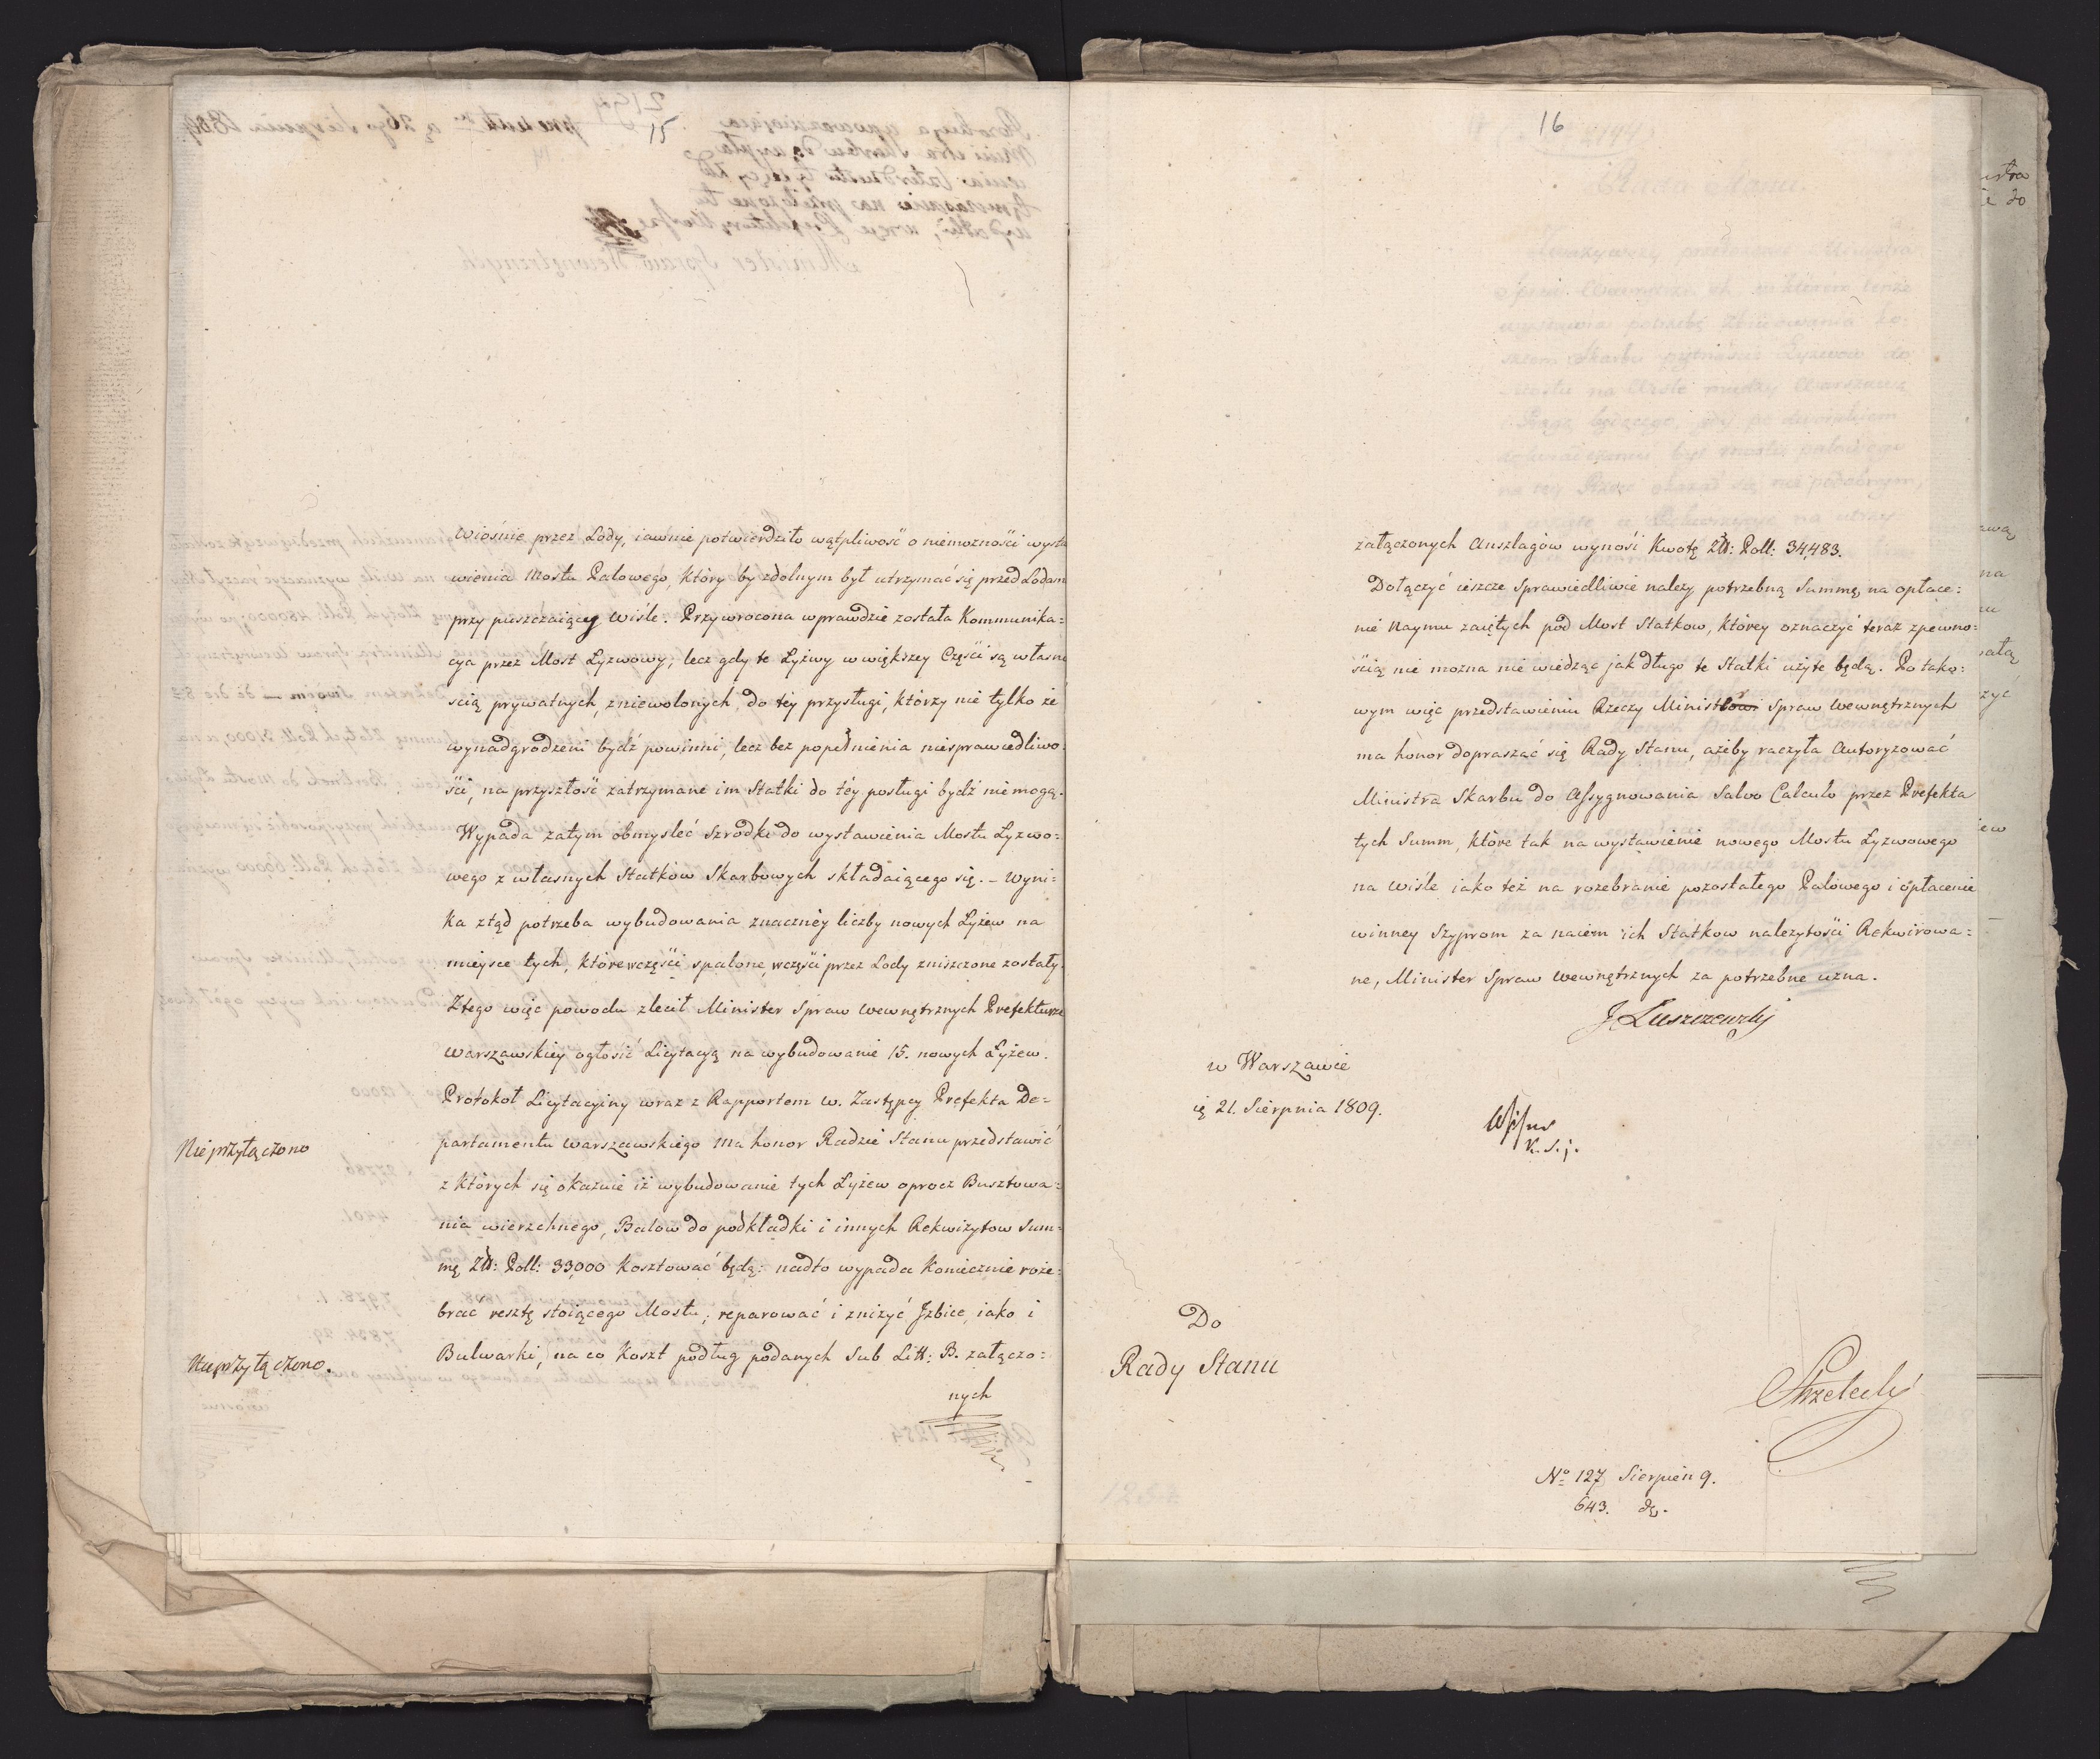 wiosnie przez Lody, iawnie potwierdziło wątpliwość o niemożności wysta
wienia Mostu Palowego, który by zdolnym był utrzymać się przed Lodami
przy puszczaiącey Wiśle. Przywrocona wprawdzie została Kommunika=
cya przez Most Łyzwowy, lecz gdy te Łyżwy w większey Części są własno
ścią prywatnych, zniewolonych do tey przysługi, którzy nie tylko że
wynadgrodzeni bydź powinni, lecz bez popełnienia niesprawiedliwo:
ści, na przyszłość zatrzymane im Statki do téy posługi bydź nie mogą.
Wypada zatym obmysleć szrodki do wystawienia Mostu Łyzwo=
wego z własnych Statków Skarbowych składaiącego się. – Wyni=
ka ztąd potrzeba wybudowania znacznéy liczby nowych Łyżew na
mieysce tych, które wczęści spalone, wczęści przez Lody zniszczone zostały.
Ztego więc powodu zlecił Minister Spraw Wewnętrznych Prefekturze
Warszawskiey ogłosić Licytacyą na wybudowanie 15. nowych Łyżew.
Protokoł Licytacyiny wraz z Rapportem W. Zastępcy Prefekta De=
partamentu Warszawskiego ma honor Radzie Stanu przedstawić
Nieprzyłączono
z których się okazuie iż wybudowanie tych Łyżew oprocz Busztowa=
nia wierzchnego, Balow do podkładki i innych Rekwizytow Sum=
mę Złł: Poll: 33,000 kosztować będą: nadto wypada koniecznie roze=
brać resztę stoiącego Mostu, reparować i zniżyć Jzbice, iako i
Bulwarki, na co koszt podług podanych Sub Litt: B. załączo=
Nieprzyłączono.
nych
16
załączonych Anszlagów wynośi Kwotę Złł: Poll: 34,483.
Dołączyć ieszcze sprawiedliwie należy potrzebną Summę, na opłace=
nie Naymu zaiętych pod Most Statkow, którey oznaczyć teraz zpewno=
ścią nie można nie wiedząc jak długo te Statki użyte będą. Po tako=
wym więc przedstawieniu Rzeczy Minister Spraw Wewnętrznych
ma honor dopraszać się Rady Stanu, ażeby raczyła Autoryzować
Ministra Skarbu do Assygnowania Salvo Calculo przez Prefekta
tych Summ, które tak na wystawienie nowego Mostu Łyzwowego
na Wiśle iako też na rozebranie pozostałego Palowego i opłacenie
winney Szyprom za naiem ich Statkow należytości Rekwirowa=
ne, Minister Spraw Wewnętrznych za potrzebne uzna.
J Łuszczewski
w Warszawie
21. Sierpnia 1809.
K. S. j.
Do
Rady Stanu
Strzelecki
No 127 Sierpień 9.
643.